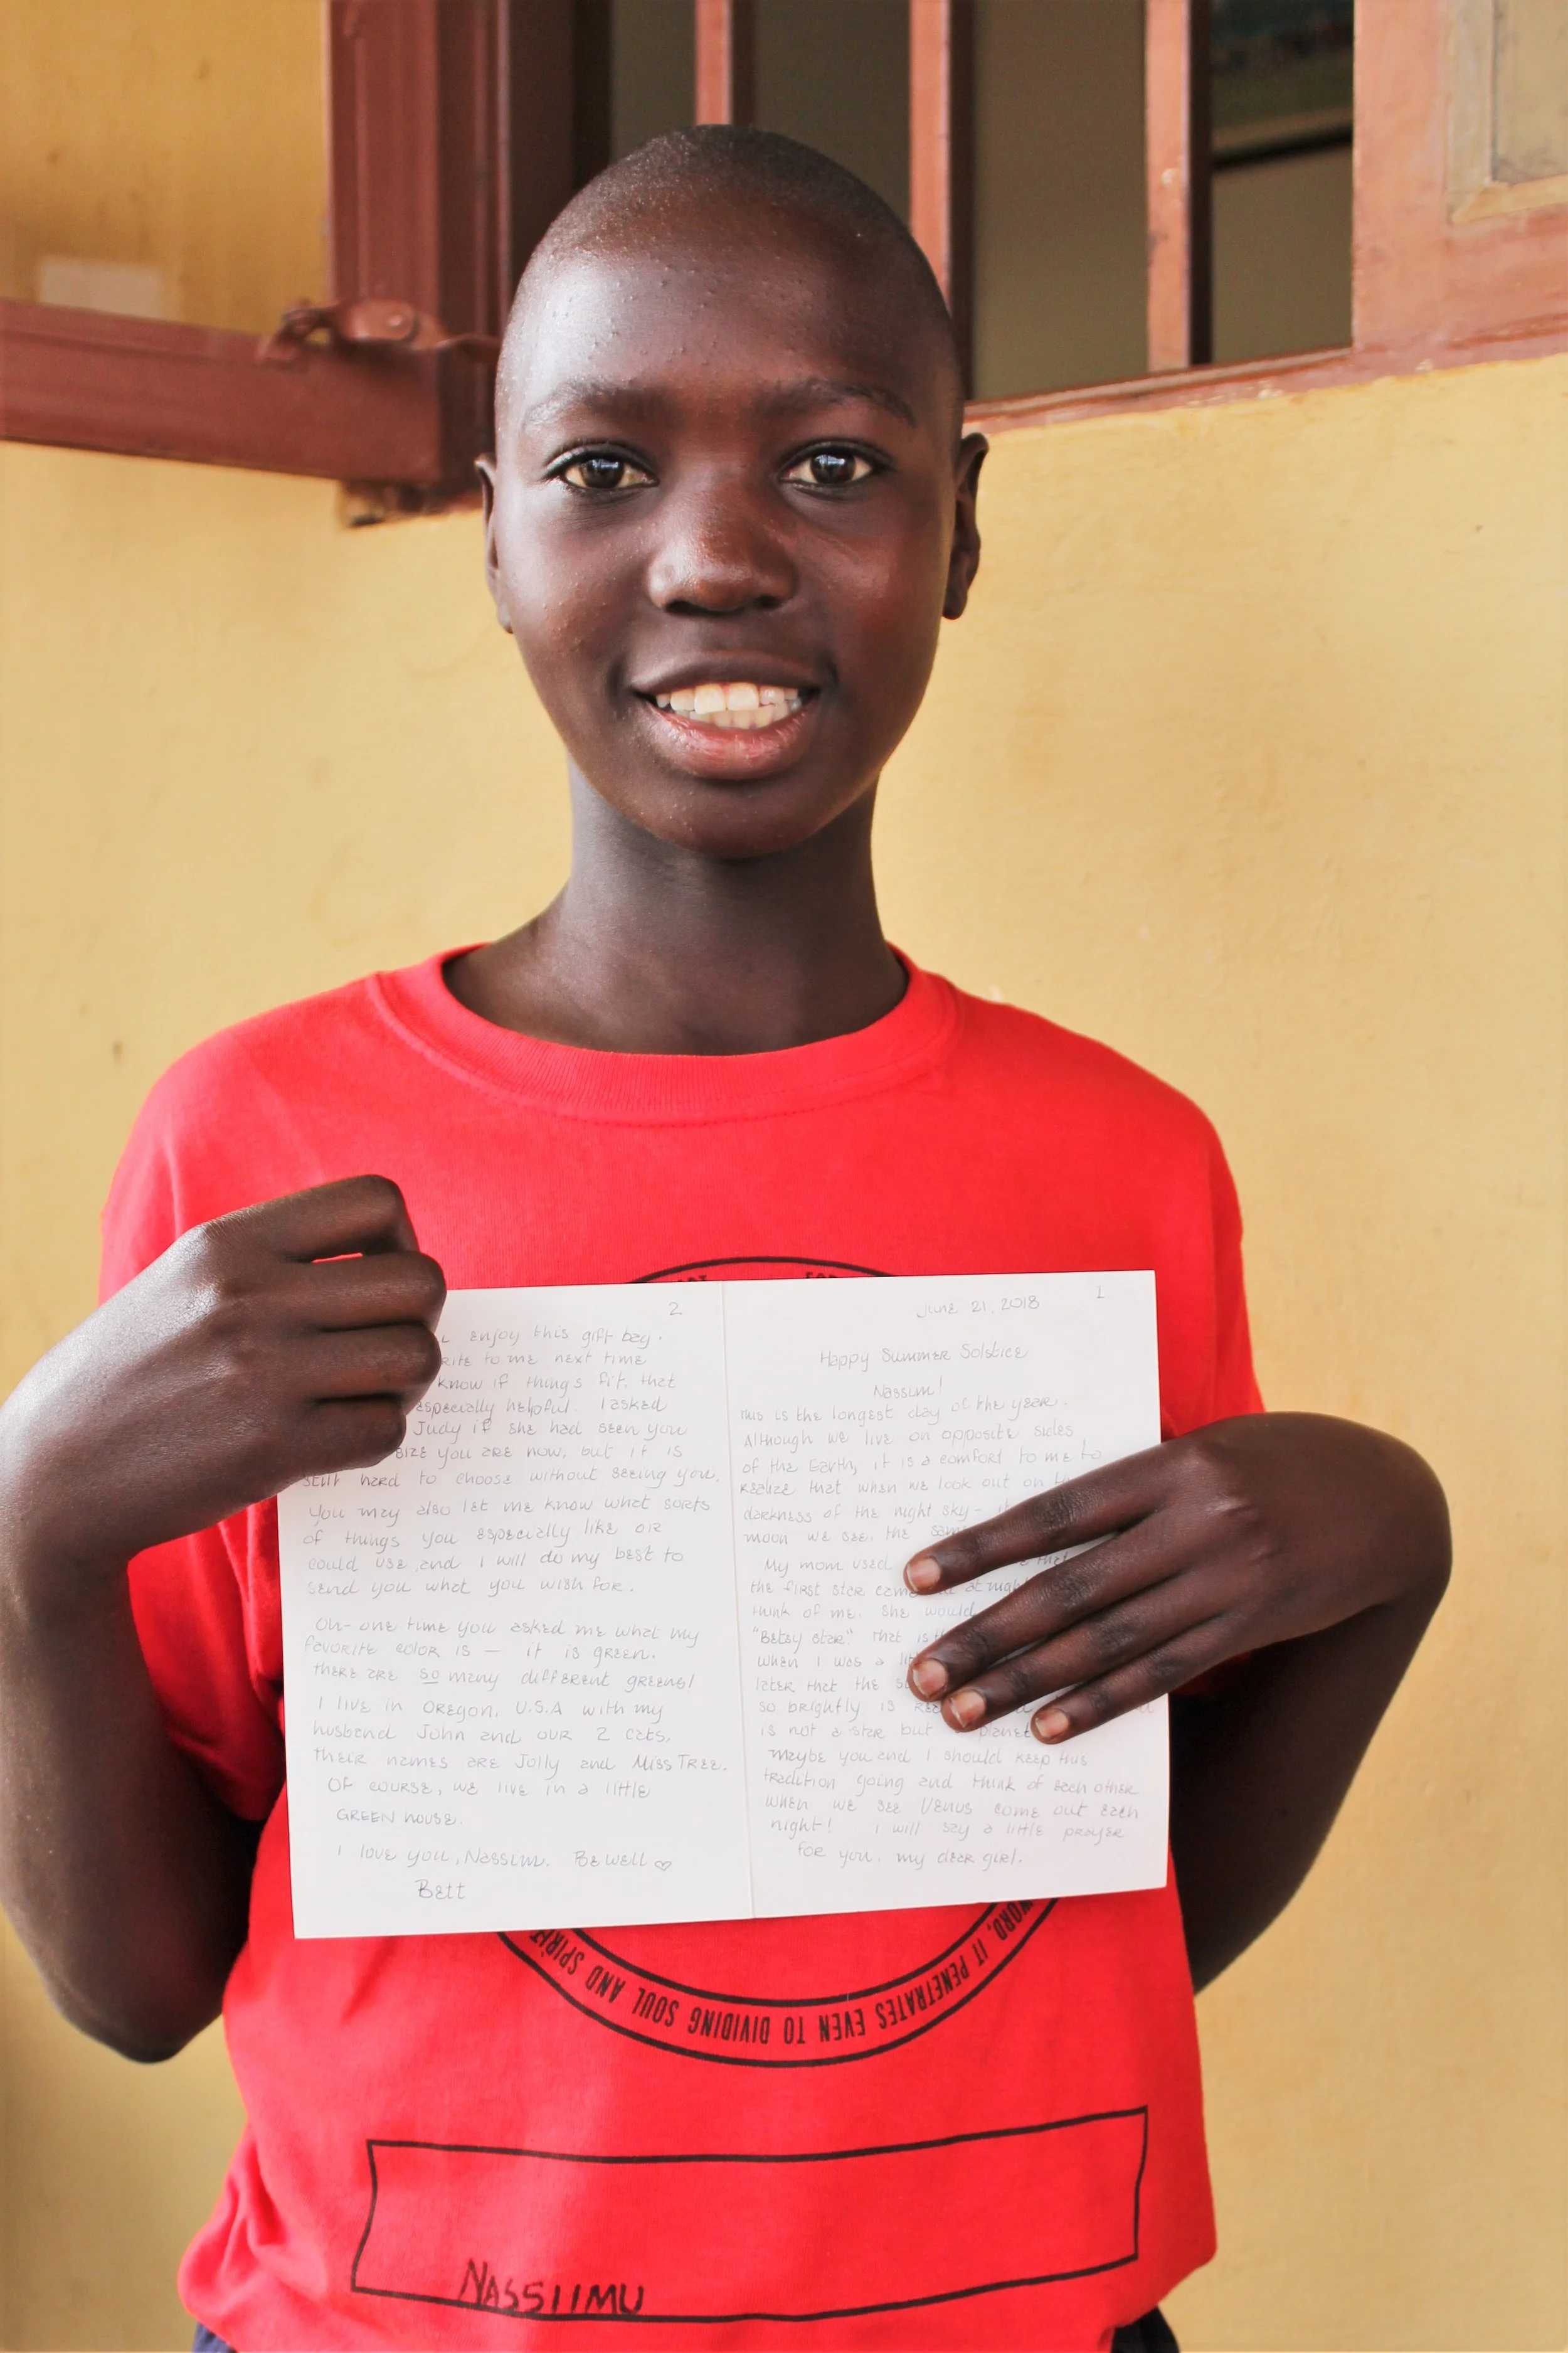 June 21, 2018 1
Happy Summer Solstice
Nassim!
This is the longest day of the year.
Although we live on opposite sides
of the Earth, it is a comfort to me to
realize that when we look out on
darkness of the night sky -
moon we see. the
My mom used that
the first star at night
think of me. She would
"Betsy star." That is
when I was a
later that the
so brightly is
is not a star but planet
Maybe you and I should keep this
tradition going and think of each other
when we see Venus come out each
night! I will say a little prayer
for you. my dear girl.
2
enjoy this gift bag.
to me next time
know if things fit. that
especially helpful. I asked
Judy if she had seen you
size you are now, but it is
still hard to choose without seeing you.
You may also let me know what sorts
of things you especially like or
could use, and I will do my best to
send you what you wish for.
Oh- one time you asked me what my
favorite color is — it is green.
there are so many different greens!
I live in Oregon, U.S.A with my
husband John and our 2 cats,
their names are Jolly and Miss Tree.
Of course, we live in a little
GREEN house.
I love you, Nassim. Be well ♡
Bett
WORD, IT PENETRATES EVEN TO DIVIDING SOUL AND SPIRIT
NASSIIMU